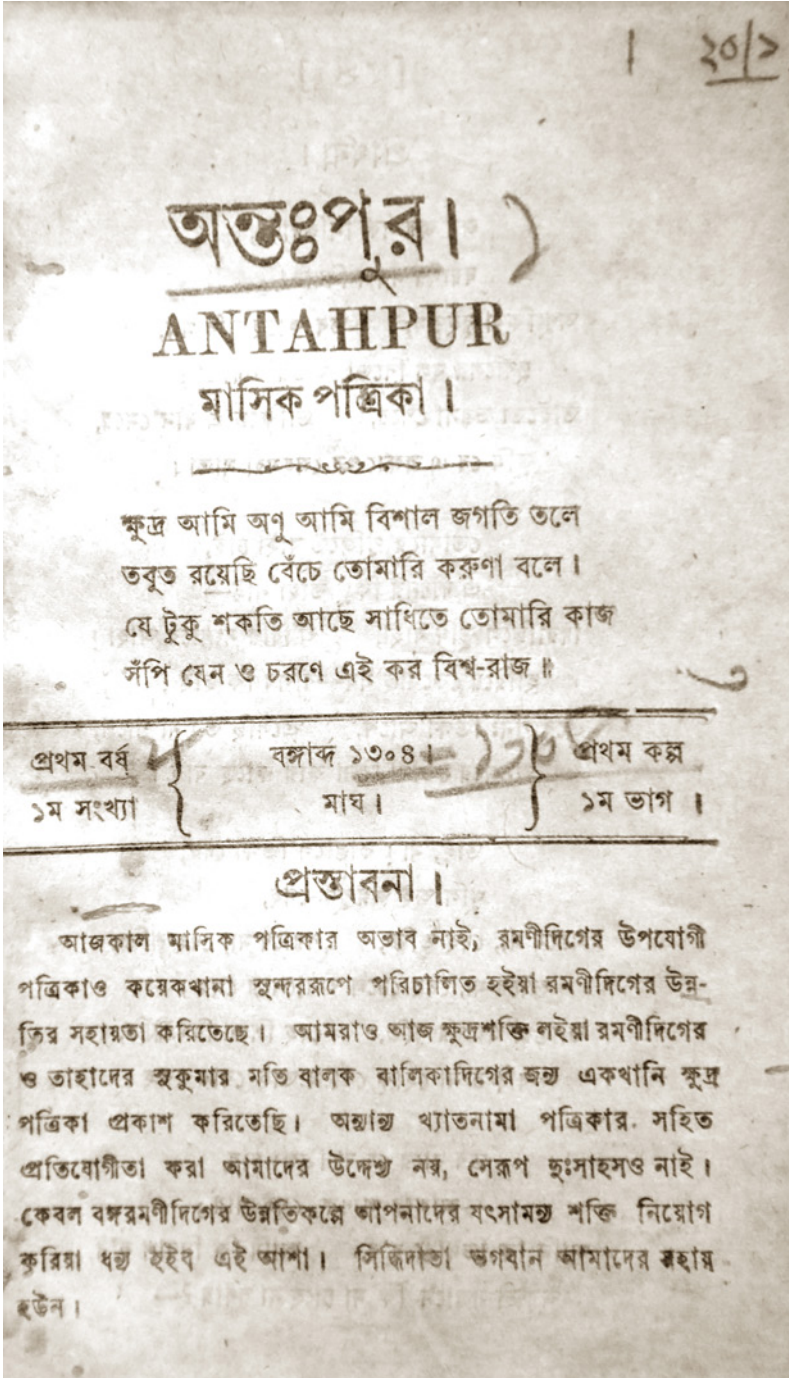 ২০/১
অন্তঃপুর।
ANTAHPUR
মাসিক পত্রিকা।
ক্ষুদ্র আমি অণু আমি বিশাল জগতি তলে
তবুত রয়েছি বেঁচে তোমারি করুণা বলে।
যে টুকু শকতি আছে সাধিতে তোমারি কাজ
সঁপি যেন ও চরণে এই কর বিশ্ব-রাজ॥
প্রথম বর্ষ বঙ্গাব্দ ১৩০৪। প্রথম কল্প
১ম সংখ্যা মাঘ। ১ম ভাগ।
প্রস্তাবনা।
আজকাল মাসিক পত্রিকার অভাব নাই, রমণীদিগের উপযোগী
পত্রিকাও কয়েকখানা সুন্দররূপে পরিচালিত হইয়া রমণীদিগের উন্ন-
তির সহায়তা করিতেছে। আমরাও আজ ক্ষুদ্রশক্তি লইয়া রমণীদিগের
ও তাহাদের সুকুমার মতি বালক বালিকাদিগের জন্য একখানি ক্ষুদ্র
পত্রিকা প্রকাশ করিতেছি। অন্যান্য খ্যাতনামা পত্রিকার সহিত
প্রতিযোগীতা করা আমাদের উদ্দেশ্য নয়, সেরূপ দুঃসাহসও নাই।
কেবল বঙ্গরমণীদিগের উন্নতিকল্পে আপনাদের যৎসামন্য শক্তি নিয়োগ
করিয়া ধন্য হইব এই আশা। সিদ্ধিদাতা ভগবান আমাদের সহায়
হউন।